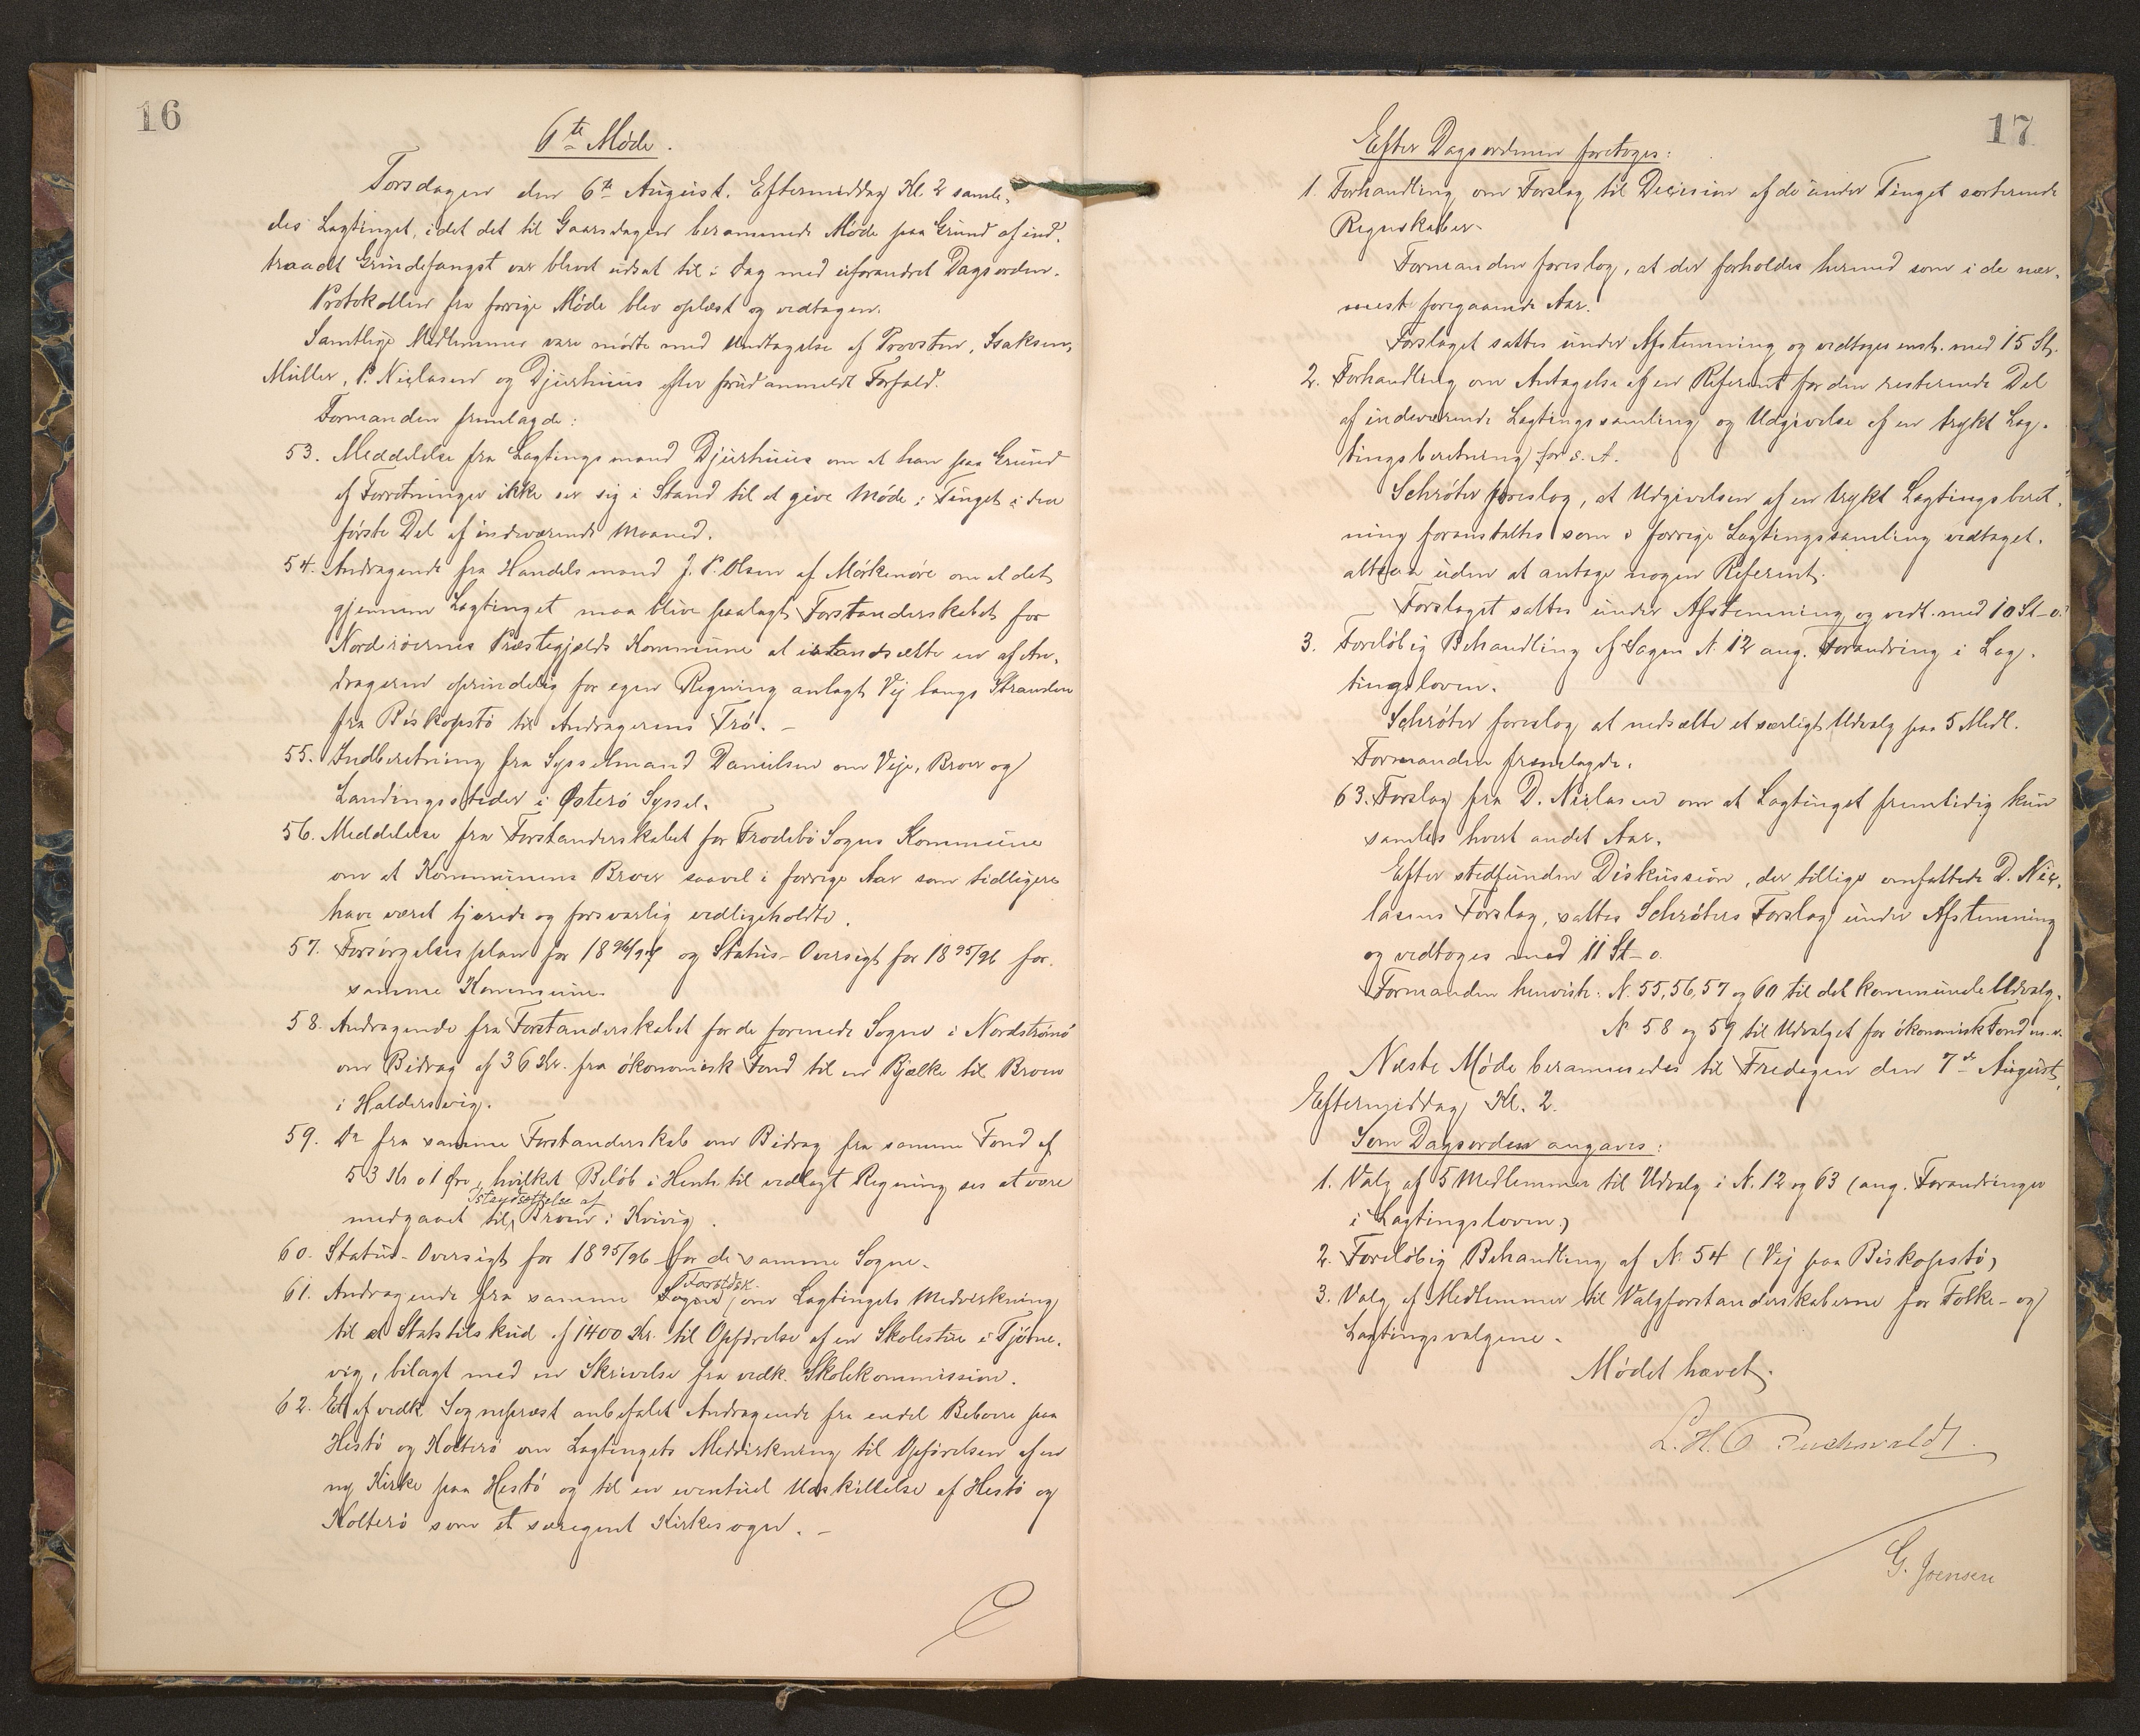 16
6te Møde.
Torsdagen den 6te August. Eftermiddag Kl. 2 samle-
des Lagtinget, idet det til Gaarsdagen berammede Møde paa Grund af ind-
traadt Grindefangst var blevet udsat til i Dag med uforandret Dagsorden.
Protokollen fra forrige Møde blev oplæst og vedtagen.
Samtlige Medlemmer vare mødte med Undtagelse af Provsten, Isaksen,
Müller, P. Niclasen og Djurhuus efter forud anmeldt Forfald.
Formanden fremlagde:
53. Meddelelse fra Lagtingsmand Djurhuus om at han paa Grund
af Forretninger ikke ser sig i Stand til at give Møde i Tinget i den
første Del af indeværende Maaned.
54. Andragende fra Handelsmand J. P. Olsen af Mørkenøre om at det
gjennem Lagtinget maa blive paalagt Forstanderskabet for
Norderøernes Præstegjælds Kommune at istandsætte en af An-
drageren oprindelig for egen Regning anlagt Vej langs Stranden
fra Biskopstø til Andragerens Trø. -
55. Indberetning fra Sysselmand Danielsen om Veje, Broer og
Landingssteder i Østerø Syssel.
56. Meddelelse fra Forstanderskabet for Frodebø Sogns Kommune
om at Kommunens Broer saavel i forrige Aar som tidligere
have været tjærede og forsvarlig vedligeholdte.
57. Forsørgelsesplan for 1896/97 og Status-Oversigt for 1895/96 for
samme Kommune.
58. Andragende fra Forstanderskabet for de forenede Sogne i Nordstrømø
om Bidrag af 36 Kr. fra økonomisk Fond til en Bjælke til Broen
i Haldersvig.
59. Do fra samme Forstanderskab om Bidrag fra samme Fond af
53 Kr 01 Øre, hvilket Beløb i Henh. til vedlagt Regning ses at være
Istandsættelse af
medgaaet til Broen i Kvivig.
60. Status-Oversigt for 1895/96 for de samme Sogne.
Forstdsk.
61. Andragende fra samme Sogne om Lagtingets Medvirkning
til et Statstilskud af 1400 Kr. til Opførelse af en Skolestue i Tjørne-
vig, bilagt med en Skrivelse fra vedk. Skolekommission.
62. Et af vedk. Sognepræst anbefalet Andragende fra endel Beboere paa
Hestø og Kolterø om Lagtingets Medvirkning til Opførelsen af en
ny Kirke paa Hestø og til en eventuel Udskillelse af Hestø og
Kolterø som et særegent Kirkesogn. -
17
Efter Dagsordenen foretoges:
1. Forhandling om Forslag til Decision af de under Tinget sorterende
Regnskaber.
Formanden foreslog, at der forholdes hermed som i de nær-
mest foregaaende Aar.
Forslaget sattes under Afstemning og vedtoges enst. med 15 St.
2. Forhandling om Antagelse af en Referent for den resterende Del
af indeværende Lagtingssamling og Udgivelse af en trykt Lag-
tingsberetning for s. A.
Schrøter foreslog, at Udgivelsen af en trykt Lagtingsberet-
ning foranstaltes som i forrige Lagtingssamling vedtaget,
altsaa uden at antage nogen Referent.
Forslaget sattes under Afstemning og vedt. med 10 St - 0.
3. Foreløbig Behandling af Sagen N. 12 ang. Forandring i Lag-
tingsloven.
Schrøter foreslog at nedsætte et særligt Udvalg paa 5 Medl.
Formanden fremlagde.
63. Forslag fra D. Niclasen om at Lagtinget fremtidig kun
samles hvert andet Aar.
Efter stedfunden Diskussion, der tillige omfattede D. Nic-
lasens Forslag, sattes Schrøters Forslag under Afstemning
og vedtoges med 11 St - 0.
Formanden henviste: N. 55, 56, 57 og 60 til det kommunale Udvalg.
N. 58 og 59 til Udvalget for økonomisk Fond m.v.
Næste Møde berammedes til Fredagen den 7de August
Eftermiddag Kl. 2.
Som Dagsorden angaves:
1. Valg af 5 Medlemmer til Udvalg i N. 12 og 63 (ang. Forandringer
i Lagtingsloven)
2. Foreløbig Behandling af N. 54 (Vej paa Biskopstø)
3. Valg af Medlemmer til Valgforstanderskaberne for Folke- og
Lagtingsvalgene.
Mødet hævet.
L. H. C Buchwaldt.
G. Joensen